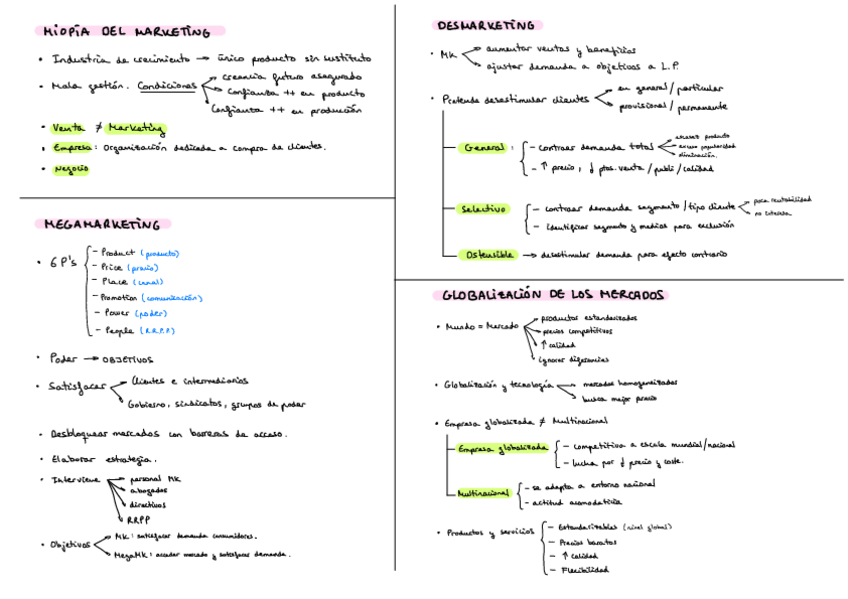 MIOPÍA DEL MARKETING
• Industria de crecimiento → único producto sin sustituto
• Mala gestión. Condiciones
creencia futuro asegurado
confianza ++ en producto
Confianza ++ en producción
• Venta ≠ Marketing
• Empresa: Organización dedicada a compra de clientes.
• Negocio
MEGAMARKETING
• 6 P's
- Product (producto)
- Price (precio)
- Place (canal)
- Promotion (comunicación)
- Power (poder)
- People (R.R.P.P)
• Poder → OBJETIVOS
• Satisfacer
Clientes e intermediarios
Gobierno, sindicatos, grupos de poder
• Desbloquear mercados con barreras de acceso.
• Elaborar estrategia.
• Interviene
personal MK
abogados
directivos
RRPP
• Objetivos
MK: satisfacer demanda consumidores.
MegaMK: acceder mercado y satisfacer demanda.
DESMARKETING
• MK
aumentar ventas y beneficios
ajustar demanda a objetivos a L.P.
• Pretende desestimular clientes
en general / particular
provisional / permanente
General:
- controar demanda total
escasez producto
exceso popularidad
eliminación.
- ↑ precio, ↓ ptos. venta / publi / calidad
Selectivo
- controar demanda segmento / tipo cliente
poca rentabilidad
no interesa
- identificar segmento y medios para exclusión
Ostensible → desestimular demanda para efecto contrario
GLOBALIZACIÓN DE LOS MERCADOS
• Mundo = Mercado
productos estandarizados
precios competitivos
↑ calidad
ignorar diferencias
• Globalización y tecnología
mercados homogeneizados
busca mejor precio
• Empresa globalizada ≠ Multinacional
Empresa globalizada
- competitiva a escala mundial/nacional
- lucha por ↓ precio y coste.
Multinacional
- se adapta a entorno nacional
- actitud acomodaticia
• Productos y servicios
- Estandarizables (nivel global)
- Precios baratos
- ↑ calidad
- Flexibilidad